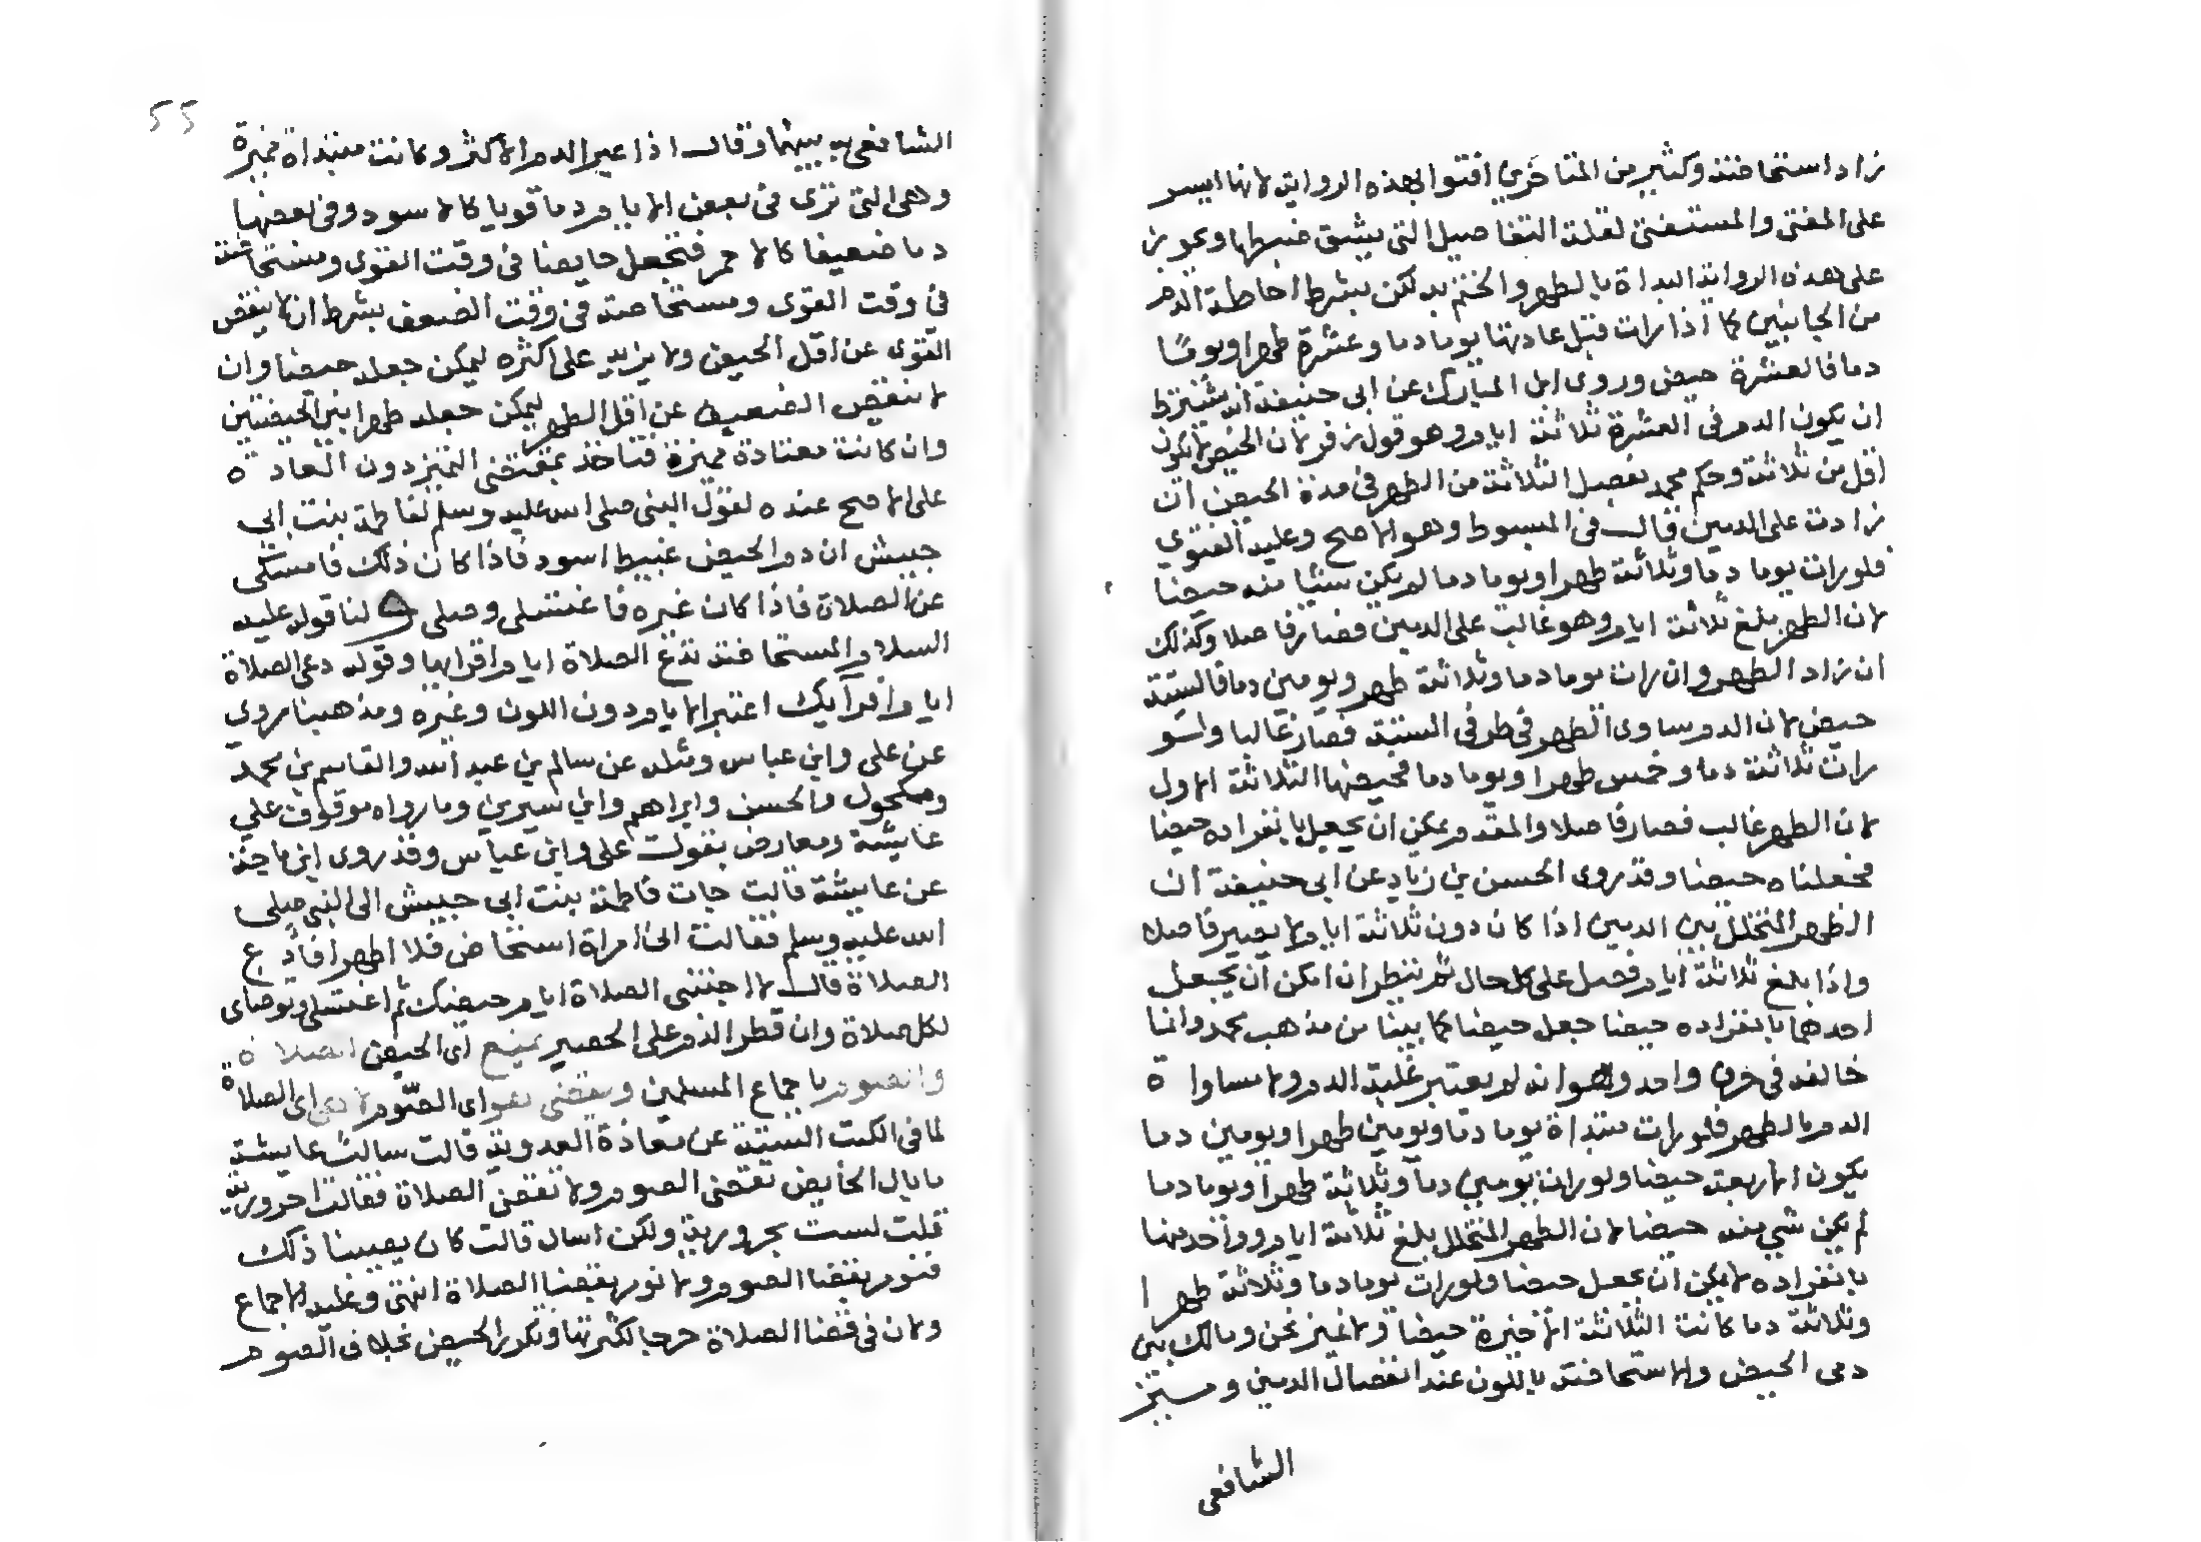 زاد استحاضة وكثير من المتاخرين افتوا بهذه الرواية لانها ايسر
على المفتى والمستفتى لقلة التفاصيل التى يشق ضبطها ويجوز
على هذه الرواية البداة بالطهر والختم به لكن بشرط احاطة الدم
من الجانبين كما اذا رات قبل عادتها يوما دما وعشرة طهرا ويوما
دما فالعشرة حيض وروى ابن المبارك عن ابى حنيفة انه يشترط
ان يكون الدم فى العشرة ثلاثة ايام وهو قول زفر لان الحيض لا يكون
اقل من ثلاثة وحكم محمد بفصل الثلاثة من الطهر فى مدة الحيض ان
زادت على الدمين قال فى المبسوط وهو الاصح وعليه الفتوى
فلو رات يوما دما وثلاثة طهرا ويوما دما لم يكن شيئا منه حيضا
لان الطهر بلغ ثلاثة ايام وهو غالب على الدمين فصار فاصلا وكذلك
ان زاد الطهر وان رات يوما دما وثلاثة طهر ويومين دما فالستة
حيض لان الدم ساوى الطهر فى طرفى الستة فصار غالبا ولو
رات ثلاثة دما وخمس طهرا ويوما دما فحيضها الثلاثة الاول
لان الطهر غالب فصار فاصلا والمقدم يمكن ان يجعل بانفراده حيضا
فجعلناه حيضا وقد روى الحسن بن زياد عن ابى حنيفة ان
الطهر المتخلل بين الدمين اذا كان دون ثلاثة ايام لا يصير فاصلا
واذا بلغ ثلاثة ايام فصل على كل حال ثم ننظر ان امكن ان يجعل
احدهما بانفراده حيضا جعل حيضا كما بينا من مذهب محمد وانما
خالفه فى حرف واحد وهو انه لم يعتبر غلبة الدم ولا مساواة
الدم بالطهر فلو رات مبتداة يوما دما ويومين طهرا ويومين دما
يكون الاربعة حيضا ولو رات يومين دما وثلاثة طهرا ويوما دما
لم يكن شي منه حيضا لان الطهر المتخلل بلغ ثلاثة ايام وواحد منها
بانفراده لا يمكن ان يجعل حيضا ولو رات يوما دما وثلاثة طهرا
وثلاثة دما كانت الثلاثة الاخيرة حيضا ولا نميز نحن ومالك بين
دمى الحيض والاستحاضة باللون عند انفصال الدمين وميز
الشافعى
55
الشافعى به بينهما وقال اذا عبر الدم الاكثر وكانت مبتداة مميزة
وهى التى ترى فى بعض الايام دما قويا كالاسود وفى بعضها
دما ضعيفا كالاحمر فتجعل حايضا فى وقت القوى ومستحاضة
فى وقت القوى ومستحاضة فى وقت الضعف بشرط ان لا ينقص
القوى عن اقل الحيض ولا يزيد على اكثره ليمكن جعله حيضا وان
لا ينقص الضعيف عن اقل الطهر ليمكن جعله طهرا بين الحيضتين
وان كانت معتادة مميزة فتاخذ بمقتضى التميز دون العادة
على الاصح عنده لقول النبى صلى الله عليه وسلم لفاطمة بنت ابى
حبيش ان دم الحيض عبيط اسود فاذا كان ذلك فامسكى
عن الصلاة فاذا كان غيره فاغتسلى وصلى ولنا قوله عليه
السلام المستحاضة تدع الصلاة ايام اقرايها وقوله دعى الصلاة
ايام اقرآيك اعتبر الايام دون اللون وغيره ومذهبنا روى
عن على وابن عباس ومثله عن سالم بن عبد الله والقاسم بن محمد
ومكحول والحسن وابراهم وابن سيرين وما رواه موقوف على
عايشة ومعارض بقول على وابن عباس وقد روى ابن ماجة
عن عايشة قالت جات فاطمة بنت ابى حبيش الى النبى صلى
الله عليه وسلم فقالت انى امراة استحاض فلا اطهر افادع
الصلاة قال لا اجتنبى الصلاة ايام حيضك ثم اغتسلى وتوضاى
لكل صلاة وان قطر الدم على الحصير يمنع اى الحيض الصلاة
والصوم باجماع المسلمين ويقضى هو اى الصوم لا هى اى الصلاة
لما فى الكتب الستة عن معاذة العدوية قالت سالت عايشة
ما بال الحايض تقضى الصوم ولا تقضى الصلاة فقالت احرورية
قلت لست بحرورية ولكن اسال قالت كان يصيبنا ذلك
فنومر بقضا الصوم ولا نومر بقضا الصلاة انتهى وعليه الاجماع
ولان فى قضا الصلاة حرجا لكثرتها وتكرر الحيض بخلاف الصوم